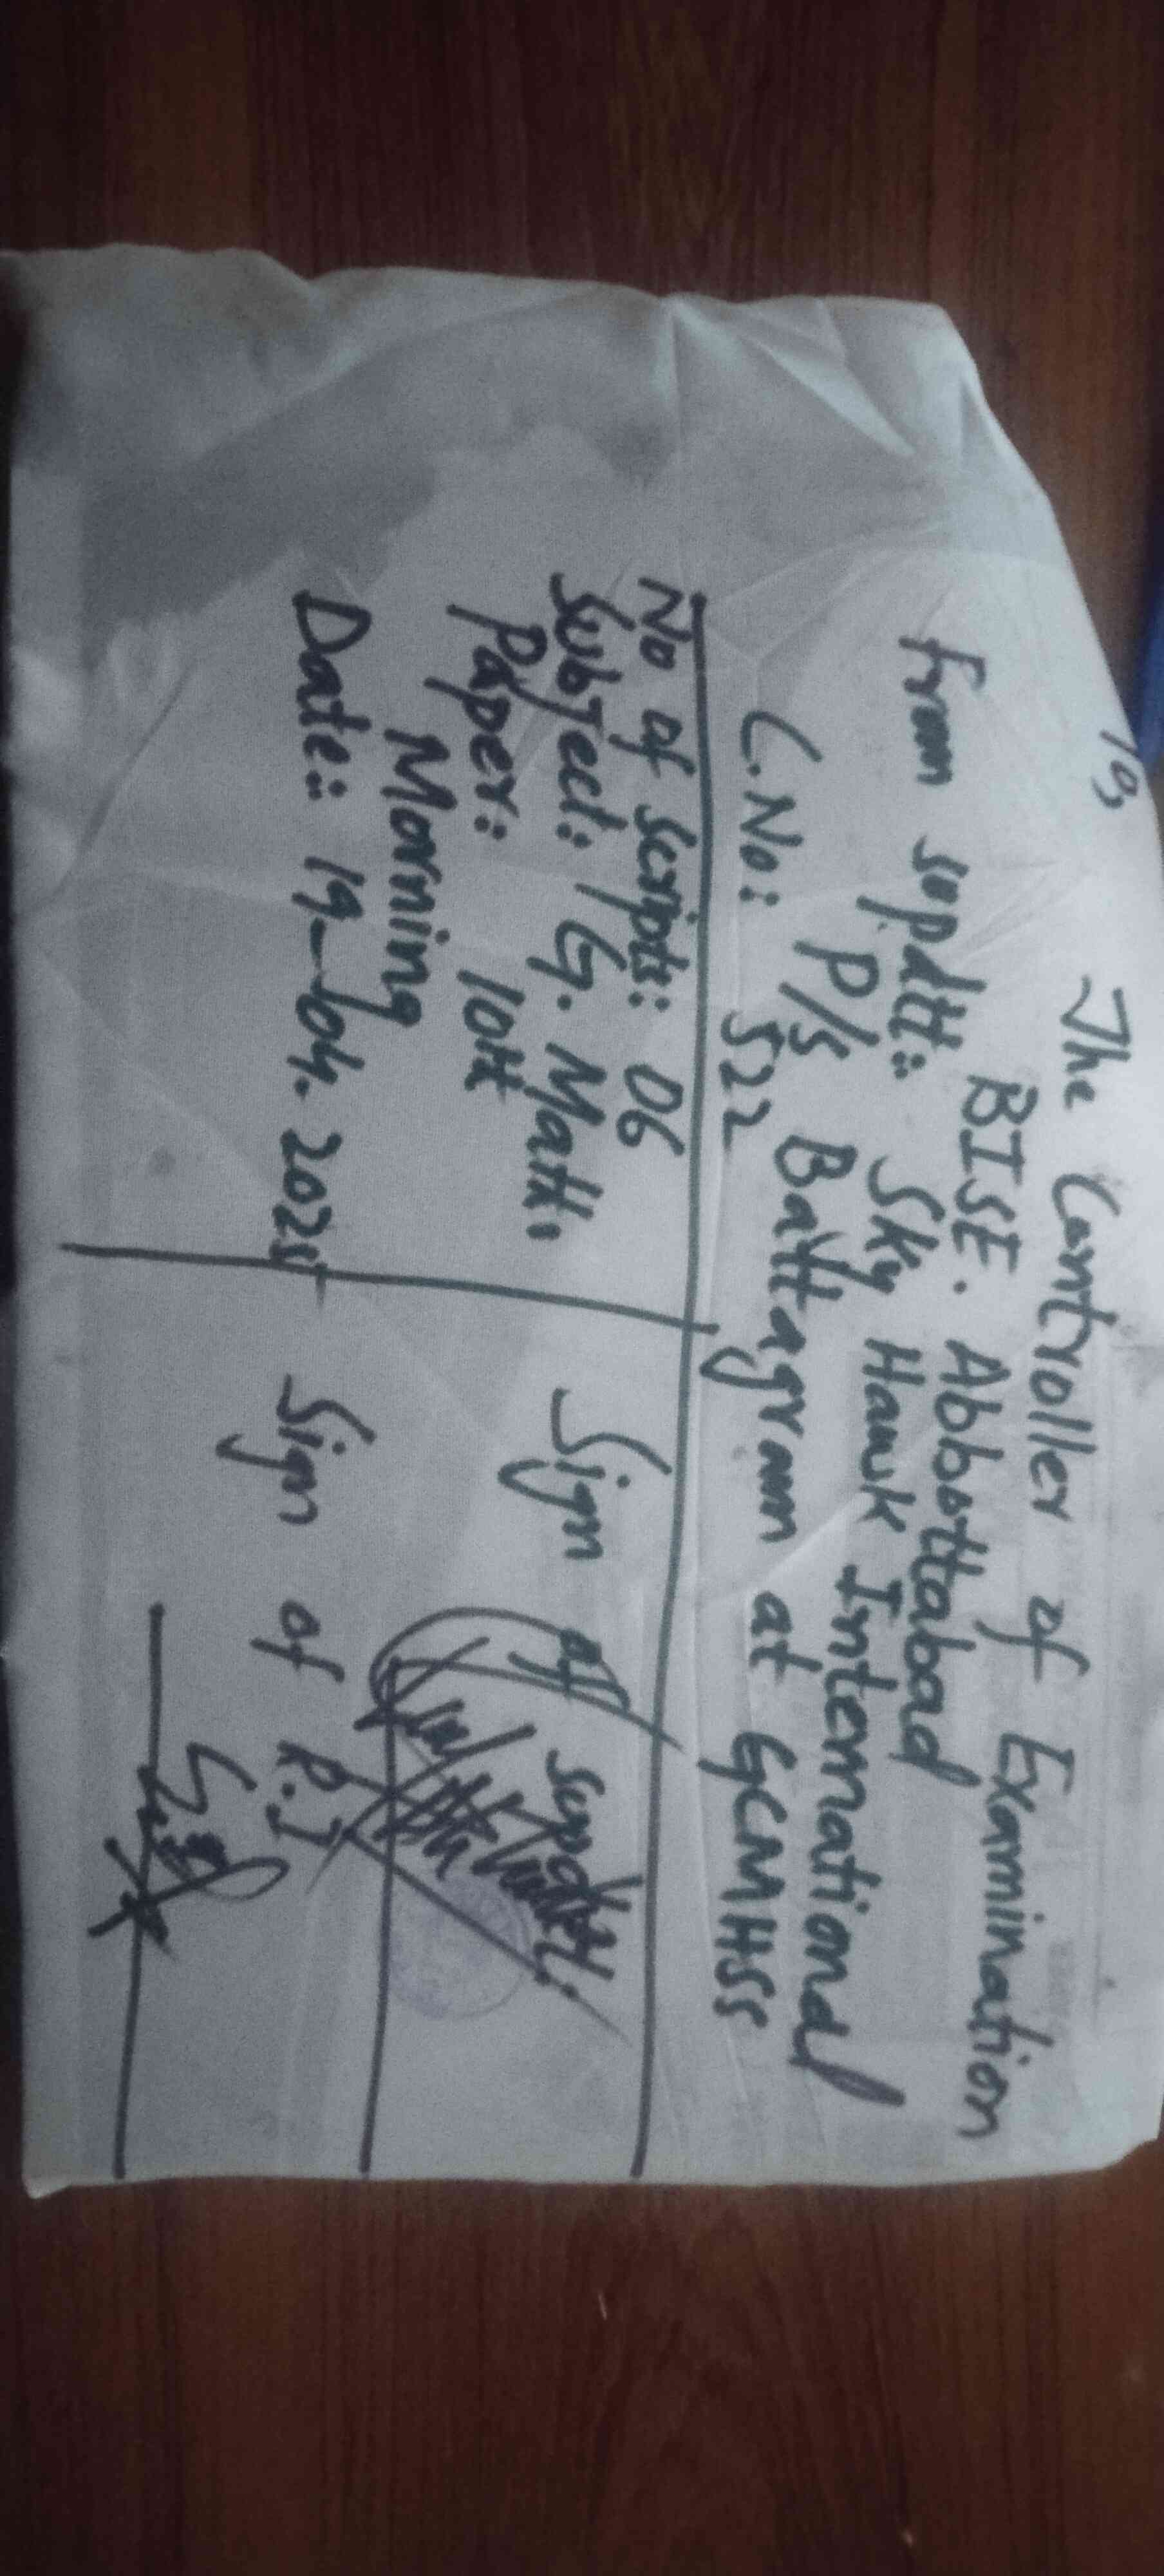 103
The Controller of Examination
BISE. Abbottabad
From supdtt: Sky Hawk International
P/s Battagram at GCMHSS
C.No: 522
No of Scripts: 06
Subject: G. Math
Paper: 10th
Morning
Date: 19-04.2025
Sign of supdtt:
Sign of R.I